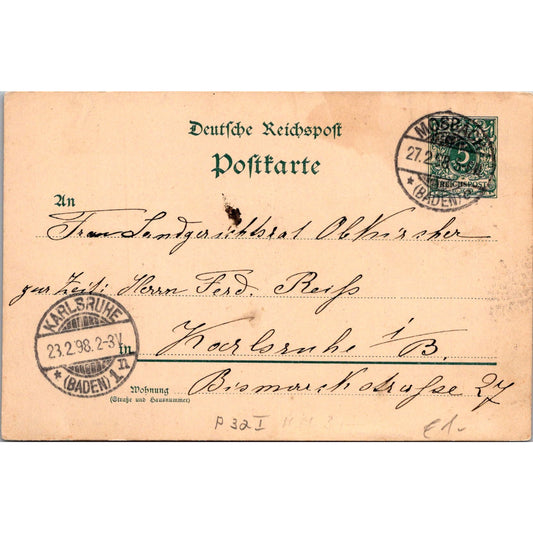 Deutsche Reichspost
Postkarte
MOSBACH
27.2.98
* (BADEN)
5
REICHSPOST
An
Frau Landgerichtsrat Obkircher
zur Zeit: Herrn Ferd. Reiß
KARLSRUHE
23.2.98.2-3V.
* (BADEN) 1 II
in
Karlsruhe i/B.
Wohnung
(Straße und Hausnummer)
Bismarckstrasse 27
P 32 I
€1-